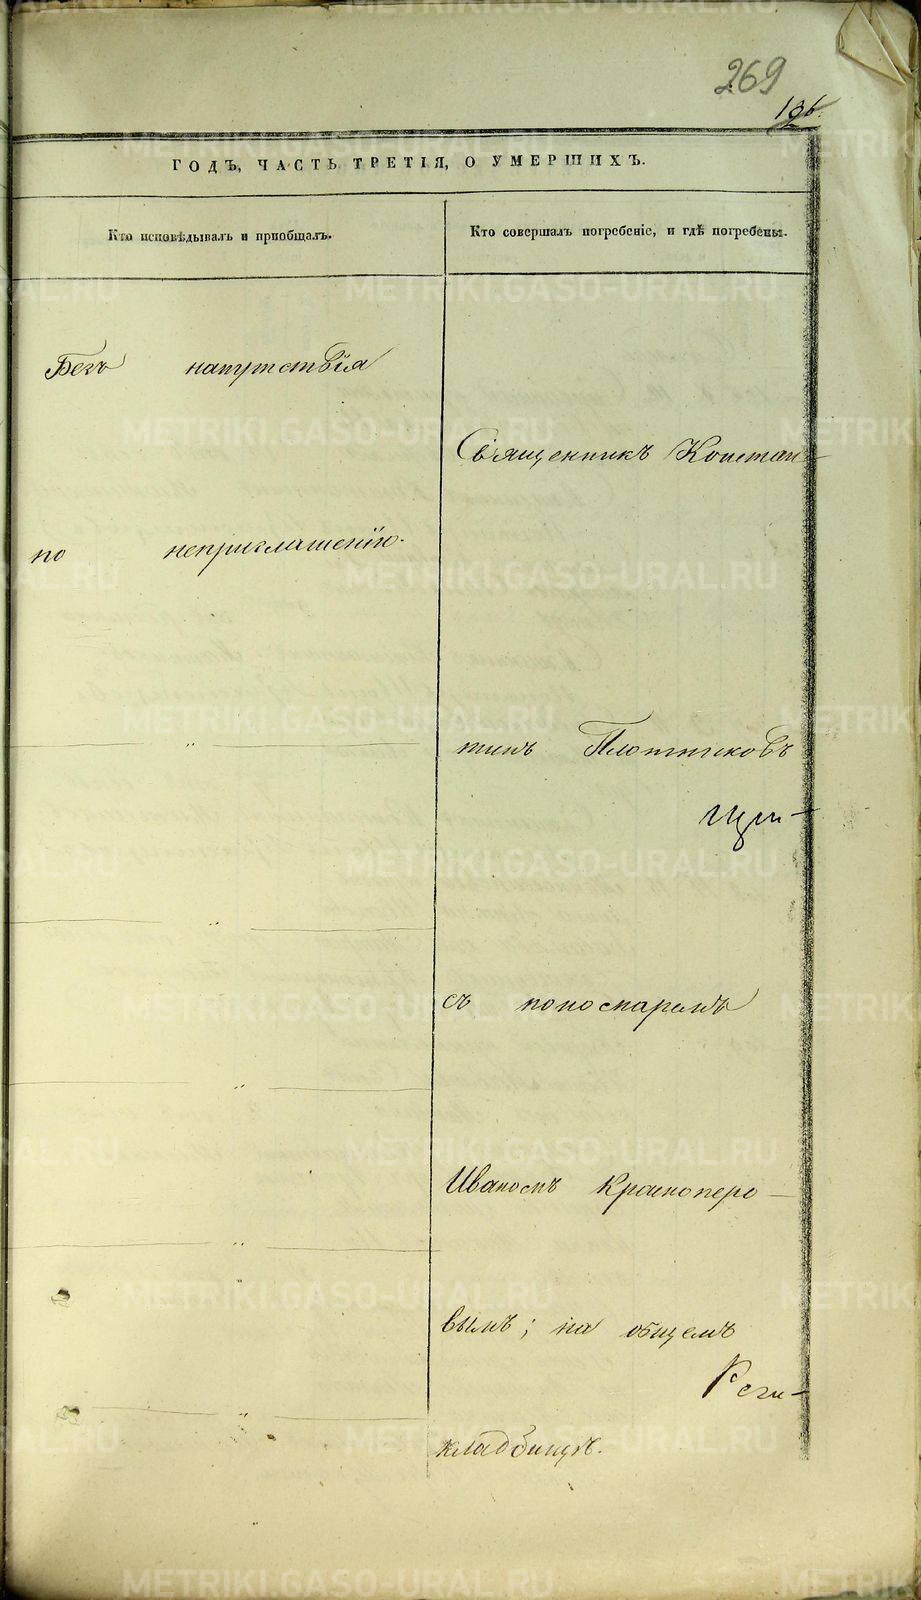 269
196.
ГОДЪ, ЧАСТЬ ТРЕТІЯ, О УМЕРШИХЪ.
Кто исповѣдывалъ и пріобщалъ.
Кто совершалъ погребеніе, и гдѣ погребены.
Безъ напутствія
по неприглашенію.
Священникъ Констан-
тинъ Плотниковъ
съ пономаремъ
Иваномъ Краснопёро-
вымъ; на общемъ
кладбищѣ.
METRIKI.GASO-URAL.RU